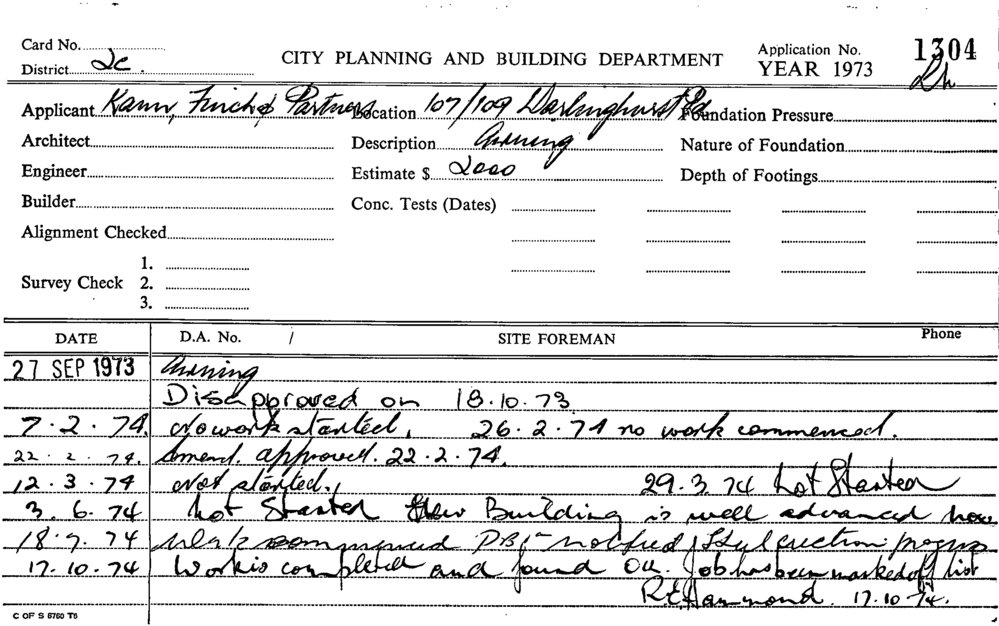 Card No.
District 2c.
CITY PLANNING AND BUILDING DEPARTMENT
Application No. 1304
YEAR 1973
Applicant Kann, Finch & Partners Location 107/109 Darlinghurst Rd Foundation Pressure
Architect Description Awning Nature of Foundation
Engineer Estimate $ 2000 Depth of Footings
Builder Conc. Tests (Dates)
Alignment Checked
Survey Check 1.
2.
3.
DATE D.A. No. / SITE FOREMAN Phone
27 SEP 1973 Awning
Disapproved on 18.10.73
7.2.74. No work started. 26.2.74 no work commenced.
22.2.74. Amend. approved. 22.2.74.
12.3.74 Not started. 29.3.74 Not Started
3.6.74 Not Started New Building is well advanced now
18.7.74 Work commenced notified Steel erection
17.10.74 Work is completed and found OK. Job has been marked off list
R.E. Hammond. 17.10.74.
C OF S 5760 T6